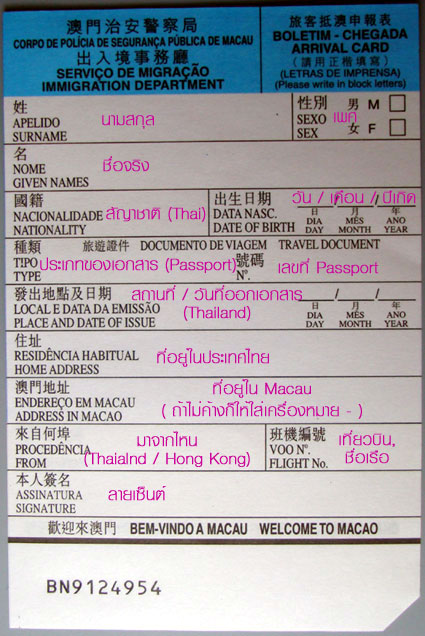 澳門治安警察局
CORPO DE POLÍCIA DE SEGURANÇA PÚBLICA DE MACAU
出入境事務廳
SERVIÇO DE MIGRAÇÃO
IMMIGRATION DEPARTMENT
旅客抵澳申報表
BOLETIM - CHEGADA
ARRIVAL CARD
(請用正楷填寫)
(LETRAS DE IMPRENSA)
(Please write in block letters)
姓
APELIDO นามสกุล
SURNAME
性別 男 M
SEXO เพศ
SEX 女 F
名
NOME ชื่อจริง
GIVEN NAMES
國籍
NACIONALIDADE สัญชาติ (Thai)
NATIONALITY
出生日期 วัน / เดือน / ปีเกิด
DATA NASC. 日 月 年
DIA MÊS ANO
DATE OF BIRTH DAY MONTH YEAR
種類 旅遊證件 DOCUMENTO DE VIAGEM TRAVEL DOCUMENT
TIPO ประเภทของเอกสาร (Passport)
TYPE
號碼 เลขที่ Passport
Nº.
發出地點及日期 สถานที่ / วันที่ออกเอกสาร
LOCAL E DATA DA EMISSÃO (Thailand)
PLACE AND DATE OF ISSUE
日 月 年
DIA MÊS ANO
DAY MONTH YEAR
住址
RESIDÊNCIA HABITUAL ที่อยู่ในประเทศไทย
HOME ADDRESS
澳門地址 ที่อยู่ใน Macau
ENDEREÇO EM MACAU
ADDRESS IN MACAO ( ถ้าไม่ค้างก็ให้ใส่เครื่องหมาย - )
來自何埠 มาจากไหน
PROCEDÊNCIA
FROM (Thaialnd / Hong Kong)
班機編號 เที่ยวบิน,
VOO Nº.
FLIGHT No. ชื่อเรือ
本人簽名
ASSINATURA ลายเซ็นต์
SIGNATURE
歡迎來澳門 BEM-VINDO A MACAU WELCOME TO MACAO
BN9124954